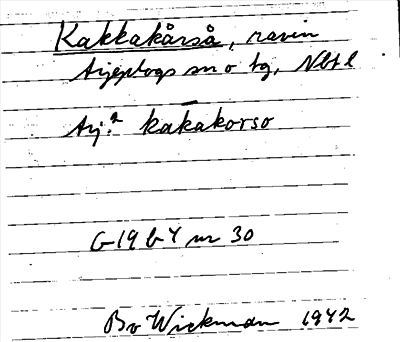 Kakkakårså, ravin
Arjeplogs sn o tg, Nbtl
Arj.² kakākorso
G 19 b 4 nr 30
Bo Wickman 1942